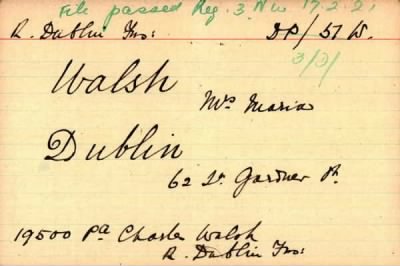 File passed Reg. 3 N.W. 17.2.21
R. Dublin Fus: DP/57 W.
3/3/
Walsh
Mrs Maria
Dublin
62 Lr. Gardner St.
19500 Pte Charles Walsh
R. Dublin Fus: